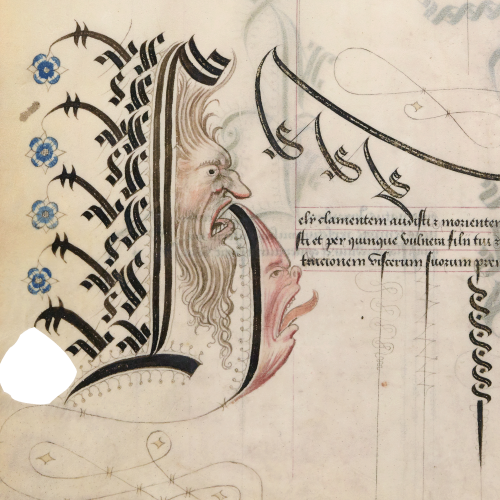 cly clamentem audisti ⁊ morientem
sti et per quinque vulnera filii tui ⁊
tractionem viscerum suorum prei